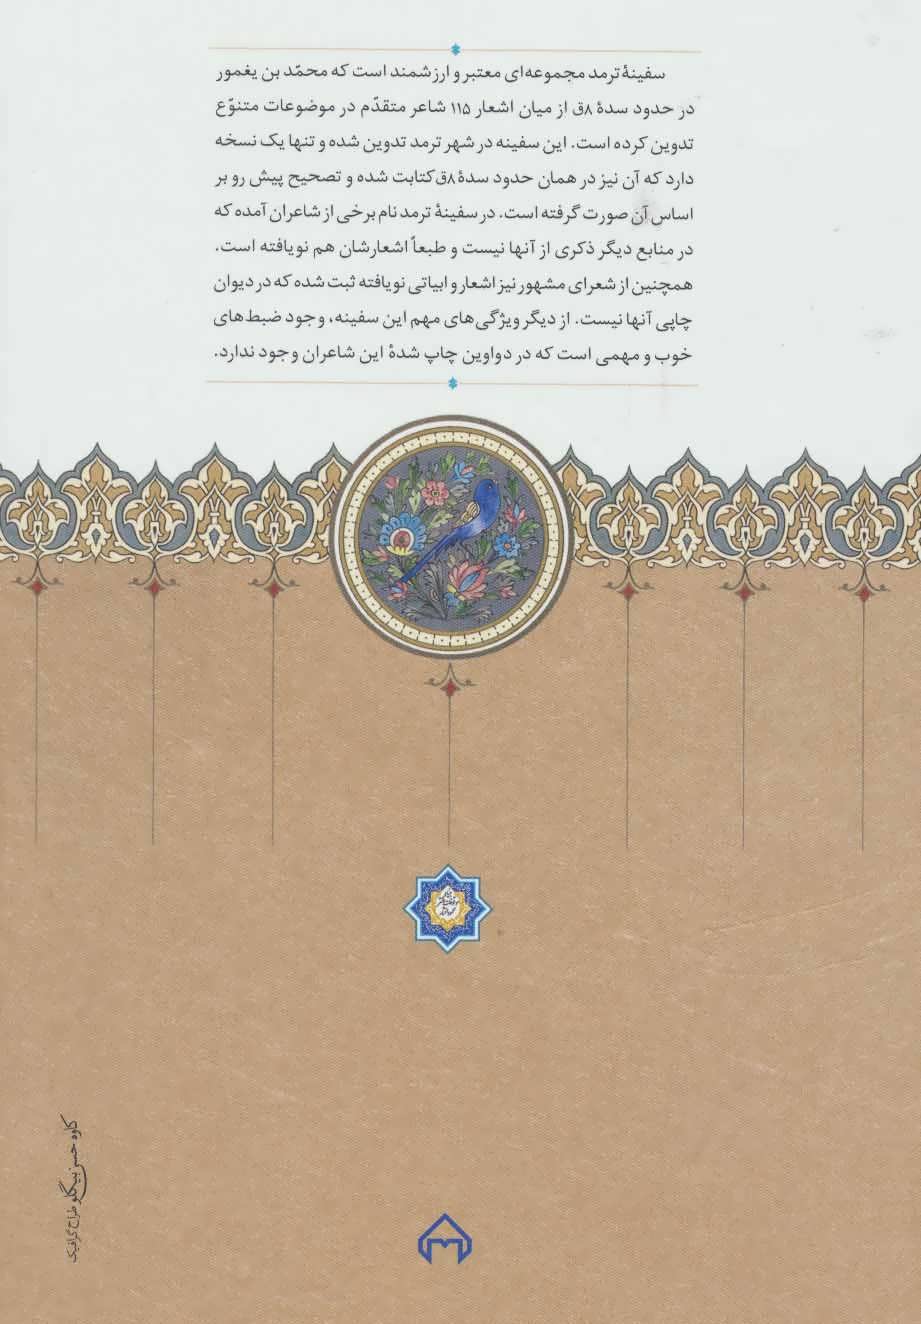 سفینهٔ ترمد مجموعه‌ای معتبر و ارزشمند است که محمّد بن یغمور
در حدود سدهٔ ۸ق از میان اشعار ۱۱۵ شاعر متقدّم در موضوعات متنوّع
تدوین کرده است. این سفینه در شهر ترمد تدوین شده و تنها یک نسخه
دارد که آن نیز در همان حدود سدهٔ ۸ق کتابت شده و تصحیح پیش رو بر
اساس آن صورت گرفته است. در سفینهٔ ترمد نام برخی از شاعران آمده که
در منابع دیگر ذکری از آنها نیست و طبعاً اشعارشان هم نویافته است.
همچنین از شعرای مشهور نیز اشعار و ابیاتی نویافته ثبت شده که در دیوان
چاپی آنها نیست. از دیگر ویژگی‌های مهم این سفینه، وجود ضبط‌های
خوب و مهمی است که در دواوین چاپ شدهٔ این شاعران وجود ندارد.
کاوه حسن بیگلو طراح گرافیک